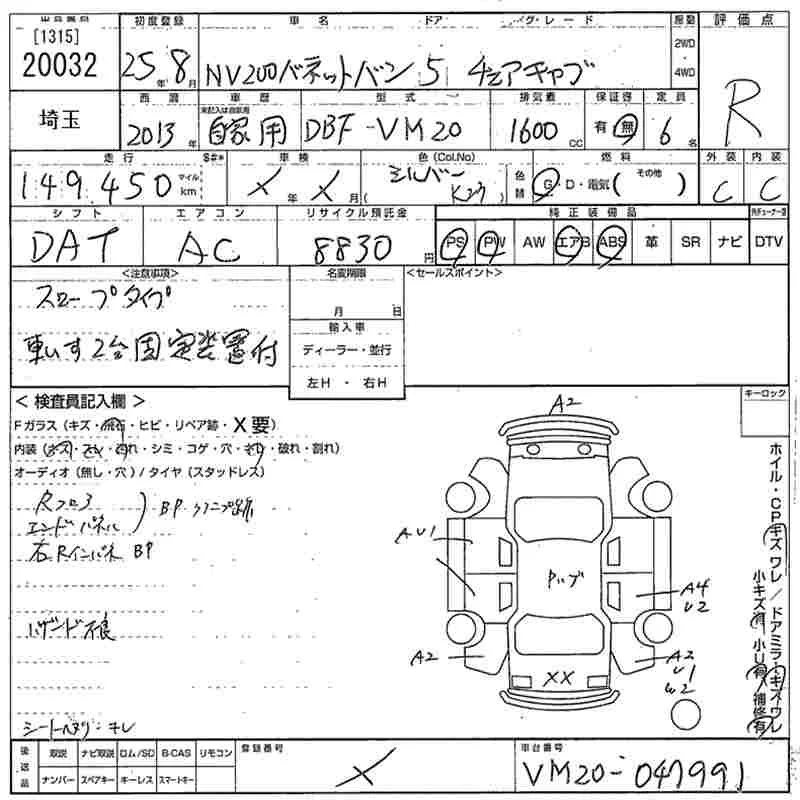 [1315]
20032
初度登録 車名 ドア グレード 駆動 評価点
25年 8月 NV200バネットバン 5 チェアキャブ 2WD 4WD R
埼玉
西暦 車歴 型式 排気量 保証書 定員
2013年 自家用 DBF-VM20 1600cc 有・無 6名
走行 $#* 車検 色(Col.No) 燃料 外装 内装
149,450 マイル km × 年 × 月 シルバー K23 色替 G・D・電気( その他 ) C C
シフト エアコン リサイクル預託金 純正装備品
DAT AC 8830円 PS PW AW エアB ABS 革 SR ナビ DTV
<注意事項> 名変期限 <セールスポイント>
スロープタイプ 月 日
輸入車
車いす2台固定装置付 ディーラー・並行
左H・右H
<検査員記入欄> キーロック
Fガラス(キズ・飛石・ヒビ・リペア跡・X要)
内装(キズ・スレ・汚れ・シミ・コゲ・穴・ソリ・破れ・割れ)
オーディオ(無し・穴)/タイヤ(スタッドレス)
Rフロア
エンドパネル
BP
右Rインパネ BP
ハザンド不良
シートヘタリ・キレ
A2
AU1
Pップ
A4
U2
A2
XX
A2
U1
U2
ホイル・CPキズワレ/ドアミラーキズワレ
小キズ有 小U有 補修有
後送品 取説 ナビ取説 ロム/SD B-CAS リモコン 登録番号 車台番号
ナンバー スペアキー キーレス スマートキー × VM20-047991